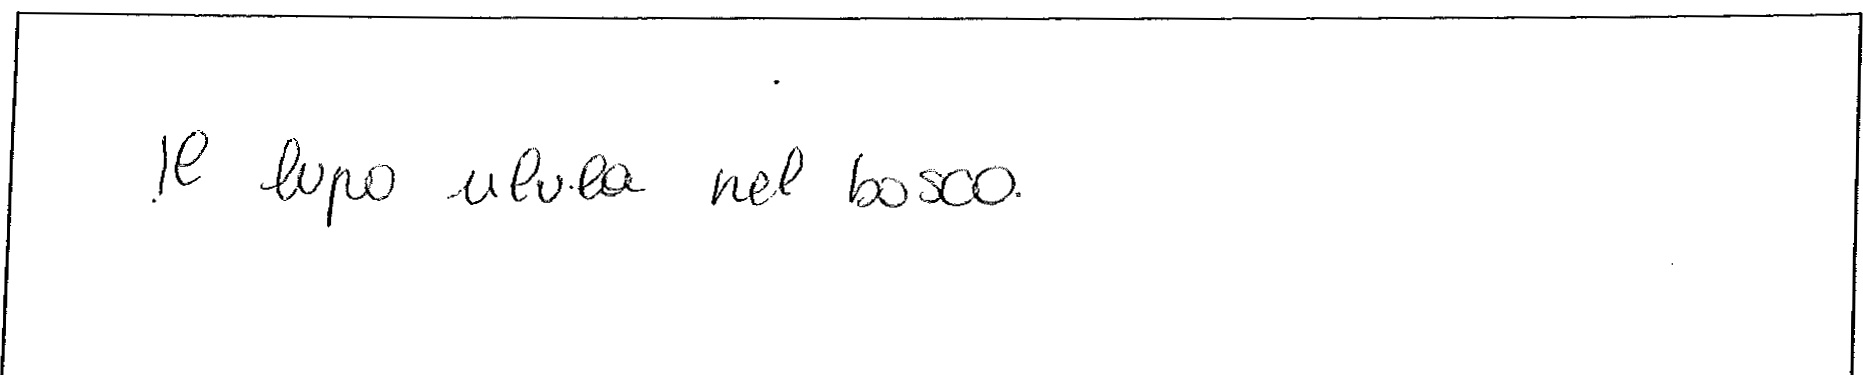 Il lupo ulula nel bosco.